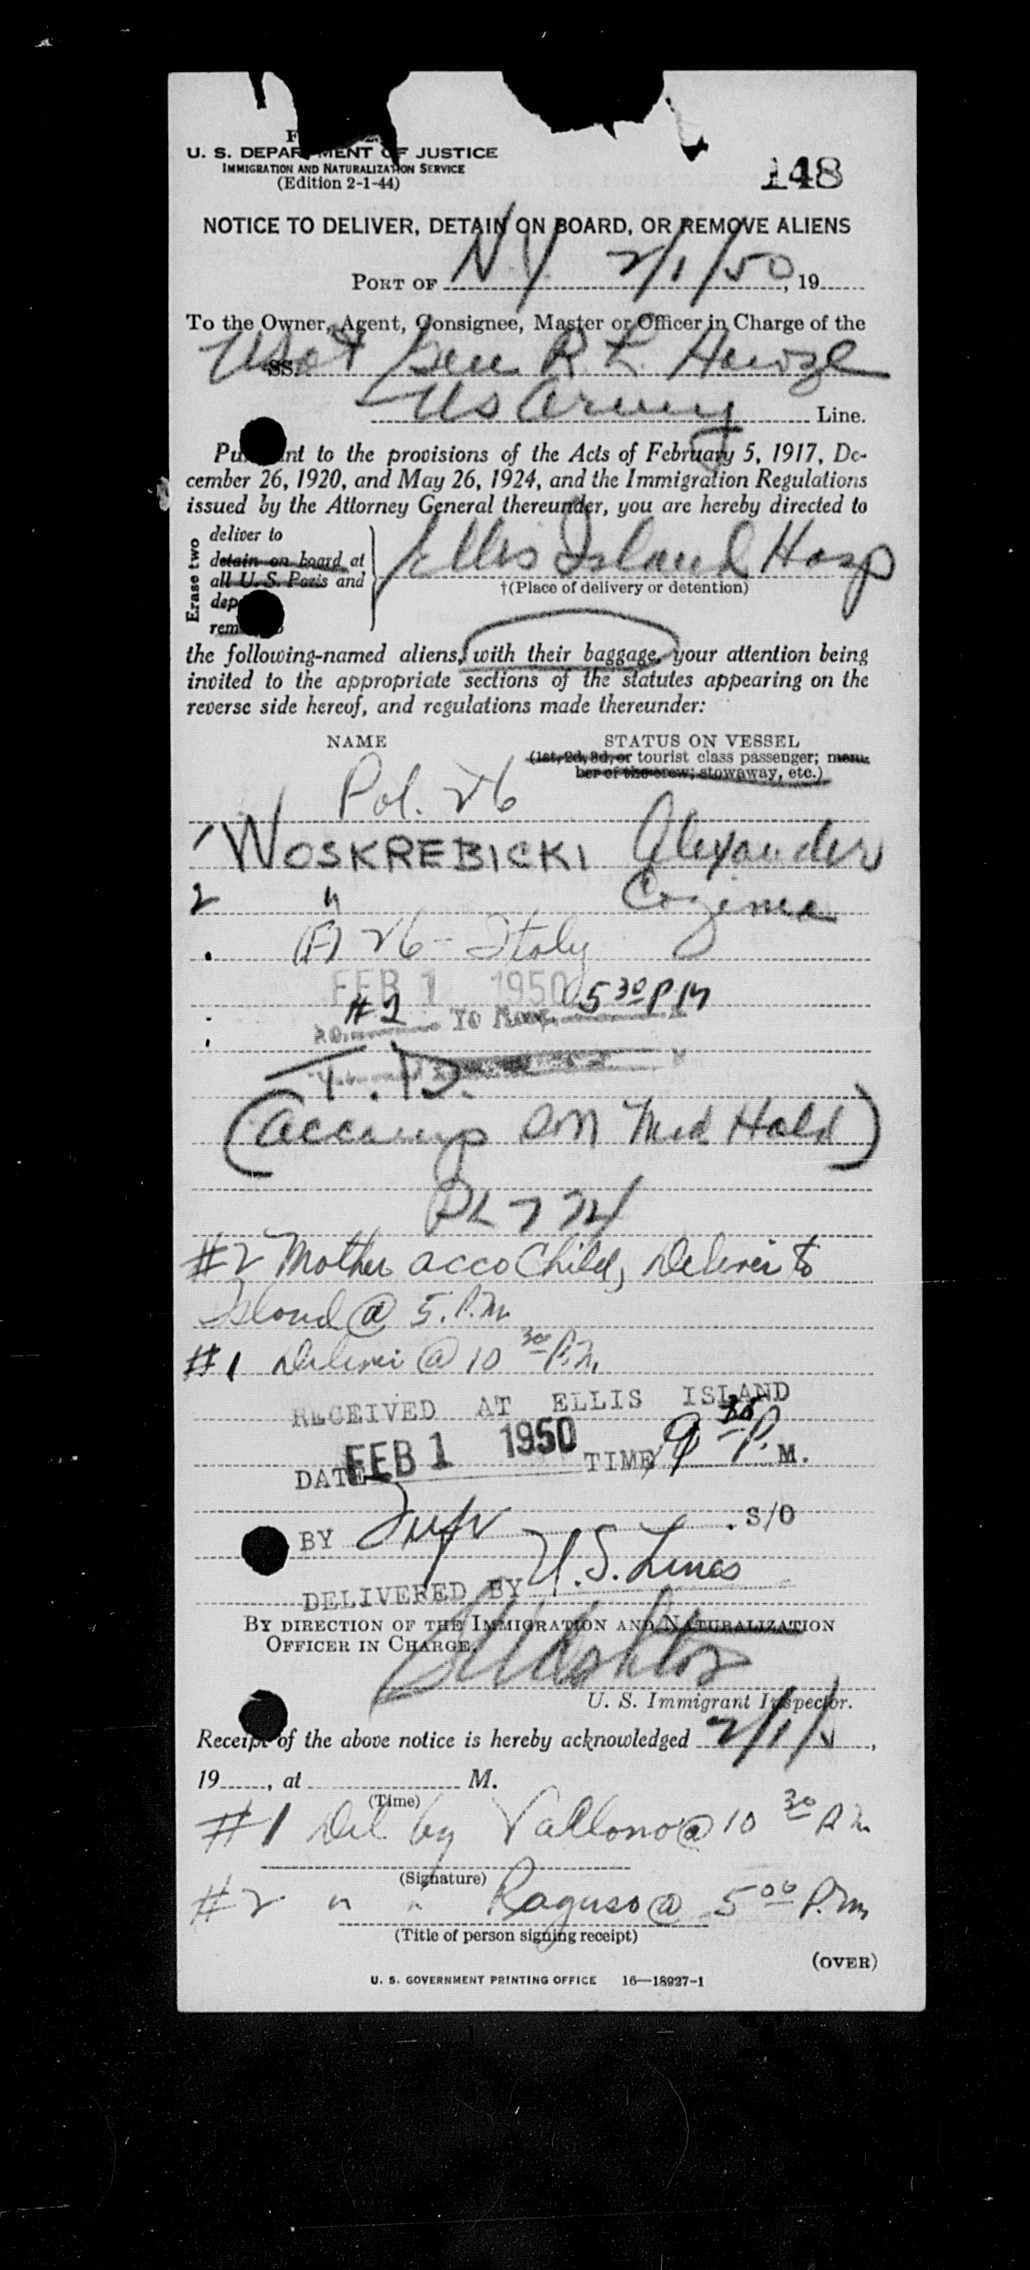 U. S. DEPARTMENT OF JUSTICE
IMMIGRATION AND NATURALIZATION SERVICE
(Edition 2-1-44)
148
NOTICE TO DELIVER, DETAIN ON BOARD, OR REMOVE ALIENS
PORT OF N.Y. 2/1/50, 19
To the Owner, Agent, Consignee, Master or Officer in Charge of the
SS. USAT Gen R. L. Howze
US Army Line.
Pursuant to the provisions of the Acts of February 5, 1917, De-
cember 26, 1920, and May 26, 1924, and the Immigration Regulations
issued by the Attorney General thereunder, you are hereby directed to
Erase two
deliver to
detain on board at
all U. S. Ports and
Ellis Island Hosp
†(Place of delivery or detention)
the following-named aliens, with their baggage, your attention being
invited to the appropriate sections of the statutes appearing on the
reverse side hereof, and regulations made thereunder:
NAME STATUS ON VESSEL
(1st, 2d, 3d, or tourist class passenger; mem-
ber of the crew; stowaway, etc.)
Pol. 26
1 WOSKREBICKI Alexander
2 " Cozima
(F) 26 - Italy
FEB 1 1950 5 30 PM
#2
T. D.
(accomp on Med Hold)
PL 774
#2 Mother acco Child, Deliver to
Island @ 5. P.M.
#1 Deliver @ 10 30 P.M.
RECEIVED AT ELLIS ISLAND
DATE FEB 1 1950 TIME 9 P. M.
BY . S/O
DELIVERED BY U.S. Lines
BY DIRECTION OF THE IMMIGRATION AND NATURALIZATION
OFFICER IN CHARGE.
U. S. Immigrant Inspector.
Receipt of the above notice is hereby acknowledged 2/1/ ,
19 , at M.
(Time)
#1 Del by Vallono @ 10 30 P.M.
(Signature)
#2 " " Raguso @ 5 00 P.M.
(Title of person signing receipt)
(OVER)
U. S. GOVERNMENT PRINTING OFFICE 16—18927-1